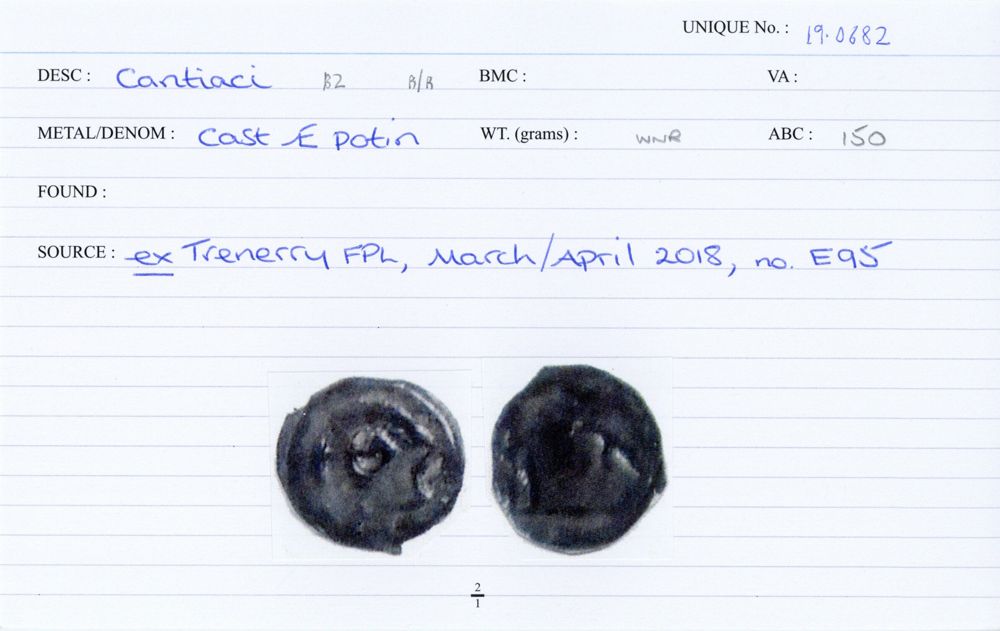 UNIQUE No. : 19.0682
DESC : Cantiaci BZ B/R BMC : VA :
METAL/DENOM : Cast Æ potin WT. (grams) : WNR ABC : 150
FOUND :
SOURCE : ex Trenerry FPL, March/April 2018, no. E95
2
1